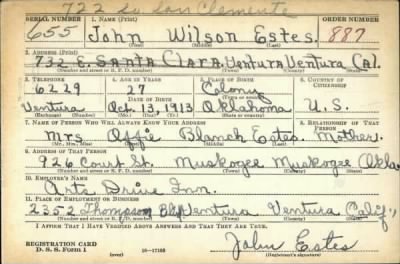 722 So San Clemente
SERIAL NUMBER 1. NAME (Print) ORDER NUMBER
655 John Wilson Estes. 887
(First) (Middle) (Last)
2. ADDRESS (Print)
732 E. SANTA CLARA, Ventura Ventura Cal.
(Number and street or R. F. D. number) (Town) (County) (State)
3. TELEPHONE 4. AGE IN YEARS 5. PLACE OF BIRTH 6. COUNTRY OF CITIZENSHIP
6229 27 Colony
DATE OF BIRTH (Town or county)
Ventura Oct. 13, 1913 Oklahoma U.S.
(Exchange) (Mo.) (Day) (Yr.) (State or country)
7. NAME OF PERSON WHO WILL ALWAYS KNOW YOUR ADDRESS 8. RELATIONSHIP OF THAT PERSON
Mrs Offie Blanch Estes. Mother.
(Mr., Mrs., Miss) (First) (Middle) (Last)
9. ADDRESS OF THAT PERSON
926 Court St. Muskogee Muskogee Okla
(Number and street or R. F. D. number) (Town) (County) (State)
10. EMPLOYER'S NAME
Arts Drive Inn.
11. PLACE OF EMPLOYMENT OR BUSINESS
2352 Thompson Blv Ventura Ventura Calif
(Number and street or R. F. D. number) (Town) (County) (State)
I AFFIRM THAT I HAVE VERIFIED ABOVE ANSWERS AND THAT THEY ARE TRUE.
REGISTRATION CARD
D. S. S. Form 1 16-17105 John Estes
(Registrant's signature)